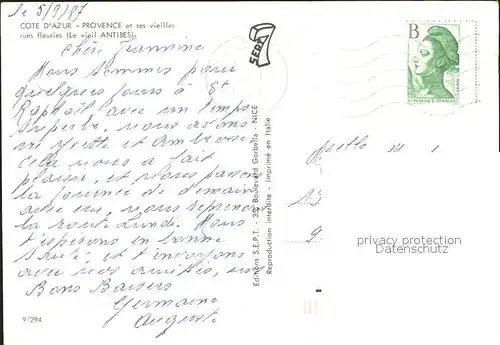 le 5/9/87
COTE D'AZUR - PROVENCE et ses vieilles
rues fleuries (Le vieil ANTIBES)
Chère
Nous sommes pour
quelques jours à St
Raphaël avec un temps
superbe, nous avons
vu et
Cela nous a fait
plaisir, et nous passons
la journée de demain
avec eux, nous reprenons
la route Lundi. Nous
t'espérons en bonne
santé, et t'envoyons
avec nos amitiés, nos
Bons Baisers
Germaine
August
9/294
Editions S.E.P.T. - 302 Boulevard Gorbella - NICE
Reproduction interdite - Imprimé en Italie
SEPT
B
REPUBLIQUE FRANÇAISE
13
9
privacy protection
Datenschutz